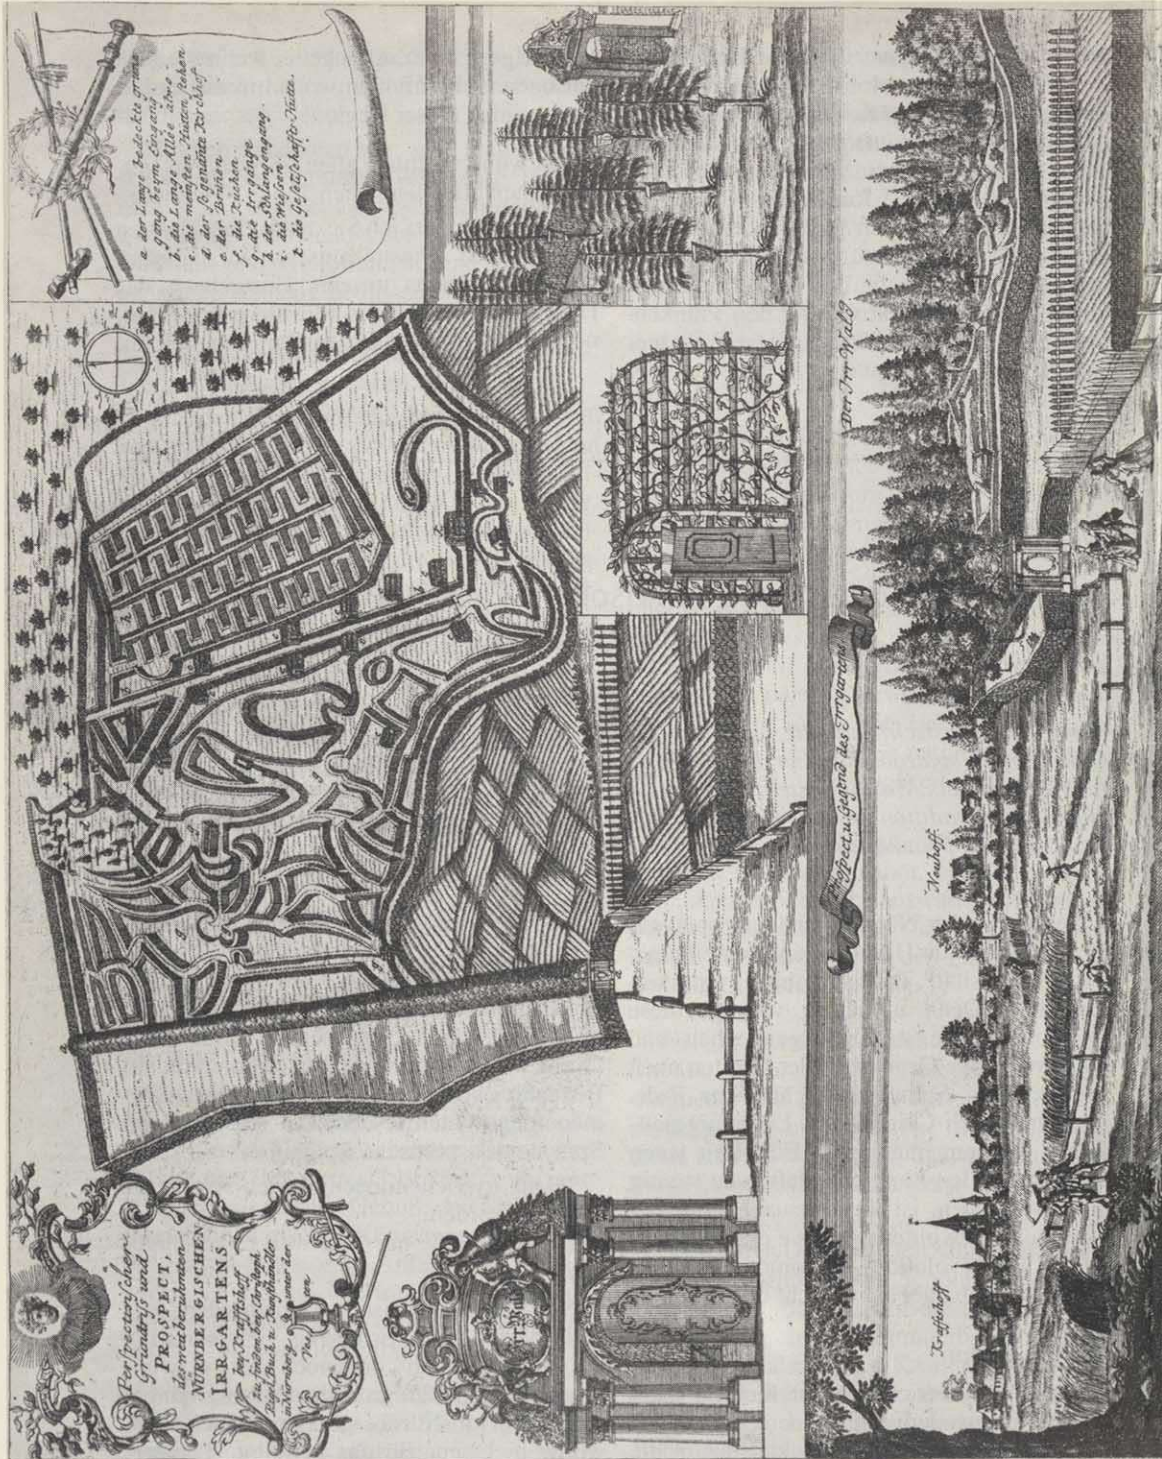 Perspectivischer
Grundriss und
PROSPECT,
des weitberühmten
NÜRNBERGISCHEN
IRRGARTENS
bey Krafftshoff.
zu finden bey Christoph
Riegel, Buch. u. Kunsthändler
in Nürnberg unter der
Vesten
a der Lange bedeckte grüne
gang beym Eingang.
b. die Lange Allée also
c. die meinsten Hütten stehen
d der so genante Kirchhof
e. der Brunen.
f. die Kuchen.
g. die Irrgänge.
h. der Schlangengang.
i. die Wiesen.
k die Gesellschaffts-Hütte.
d
c
Prospect, u. Gegend des Irrgartens
Kraftshoff
Neuhoff
Der Irr Wald